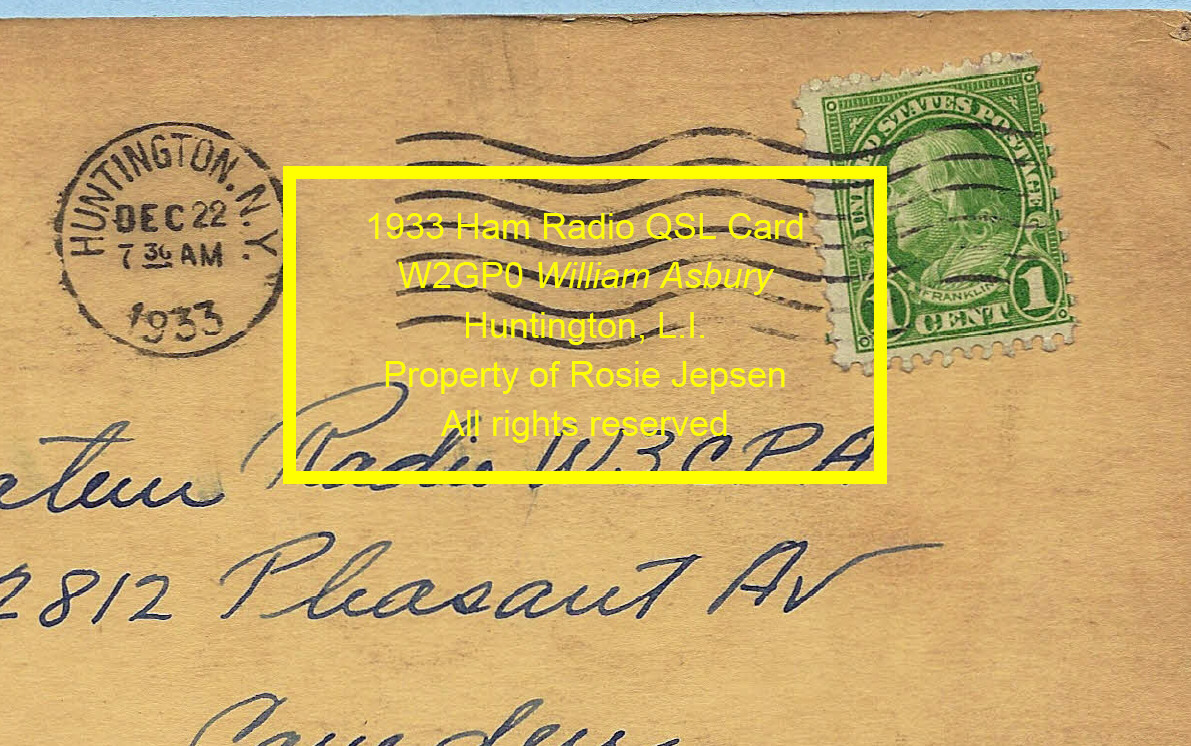 HUNTINGTON, N.Y.
DEC 22
7 30 AM
1933
UNITED STATES POSTAGE
FRANKLIN
1 CENT 1
1933 Ham Radio QSL Card
W2GP0 William Asbury
Huntington, L.I.
Property of Rosie Jepsen
All rights reserved
Radio W3CPA
2812 Pleasant Av
Camden